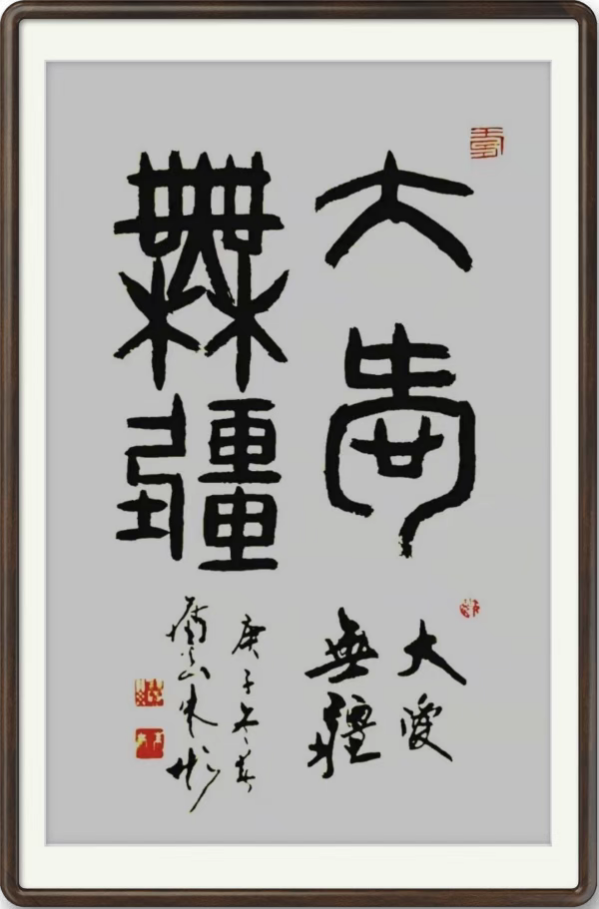 大愛
無疆
大愛
無疆
庚子冬
山朱彬